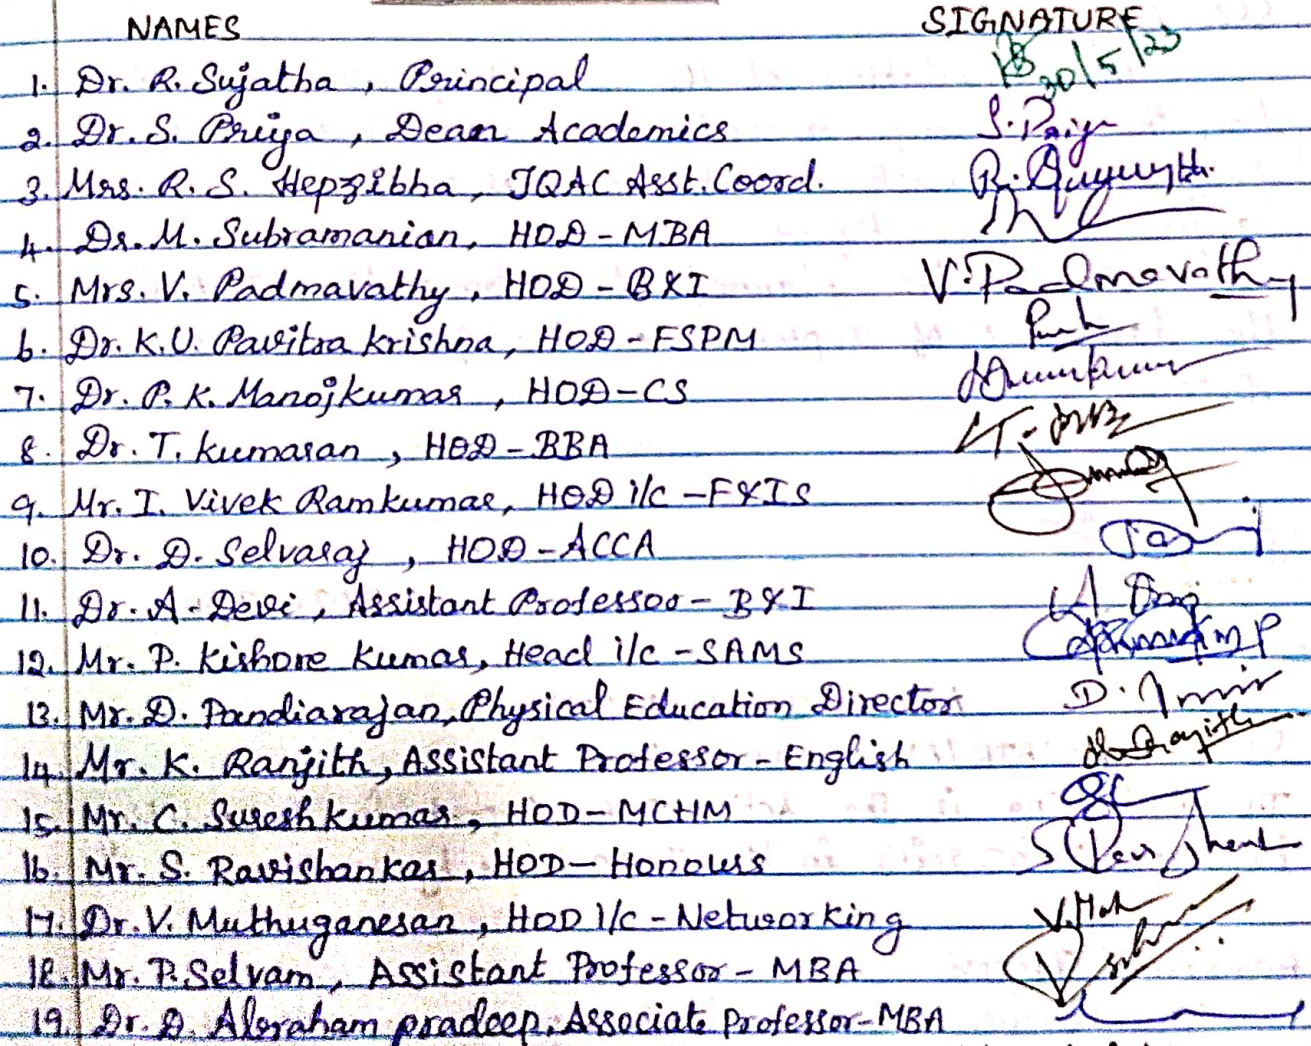 NAMES SIGNATURE
30/5/23
1. Dr. R. Sujatha, Principal
2. Dr. S. Priya, Dean Academics S. Priya
3. Mrs. R. S. Hepzibha, IQAC Asst. Coord.
4. Dr. M. Subramanian, HOD - MBA
5. Mrs. V. Padmavathy, HOD - B&I V. Padmavathy
6. Dr. K.U. Pavitra Krishna, HOD - FSPM
7. Dr. P. K. Manojkumar, HOD - CS
8. Dr. T. Kumaran, HOD - BBA
9. Mr. I. Vivek Ramkumar, HOD i/c - F&IS
10. Dr. D. Selvaraj, HOD - ACCA
11. Dr. A. Devi, Assistant Professor - B&I
12. Mr. P. Kishore Kumar, Head i/c - SAMS
13. Mr. D. Pandiarajan, Physical Education Director
14. Mr. K. Ranjith, Assistant Professor - English
15. Mr. C. Sureshkumar, HOD - MCHM
16. Mr. S. Ravishankar, HOD - Honours
17. Dr. V. Muthuganesan, HOD i/c - Networking
18. Mr. P. Selvam, Assistant Professor - MBA
19. Dr. D. Abraham pradeep, Associate Professor - MBA